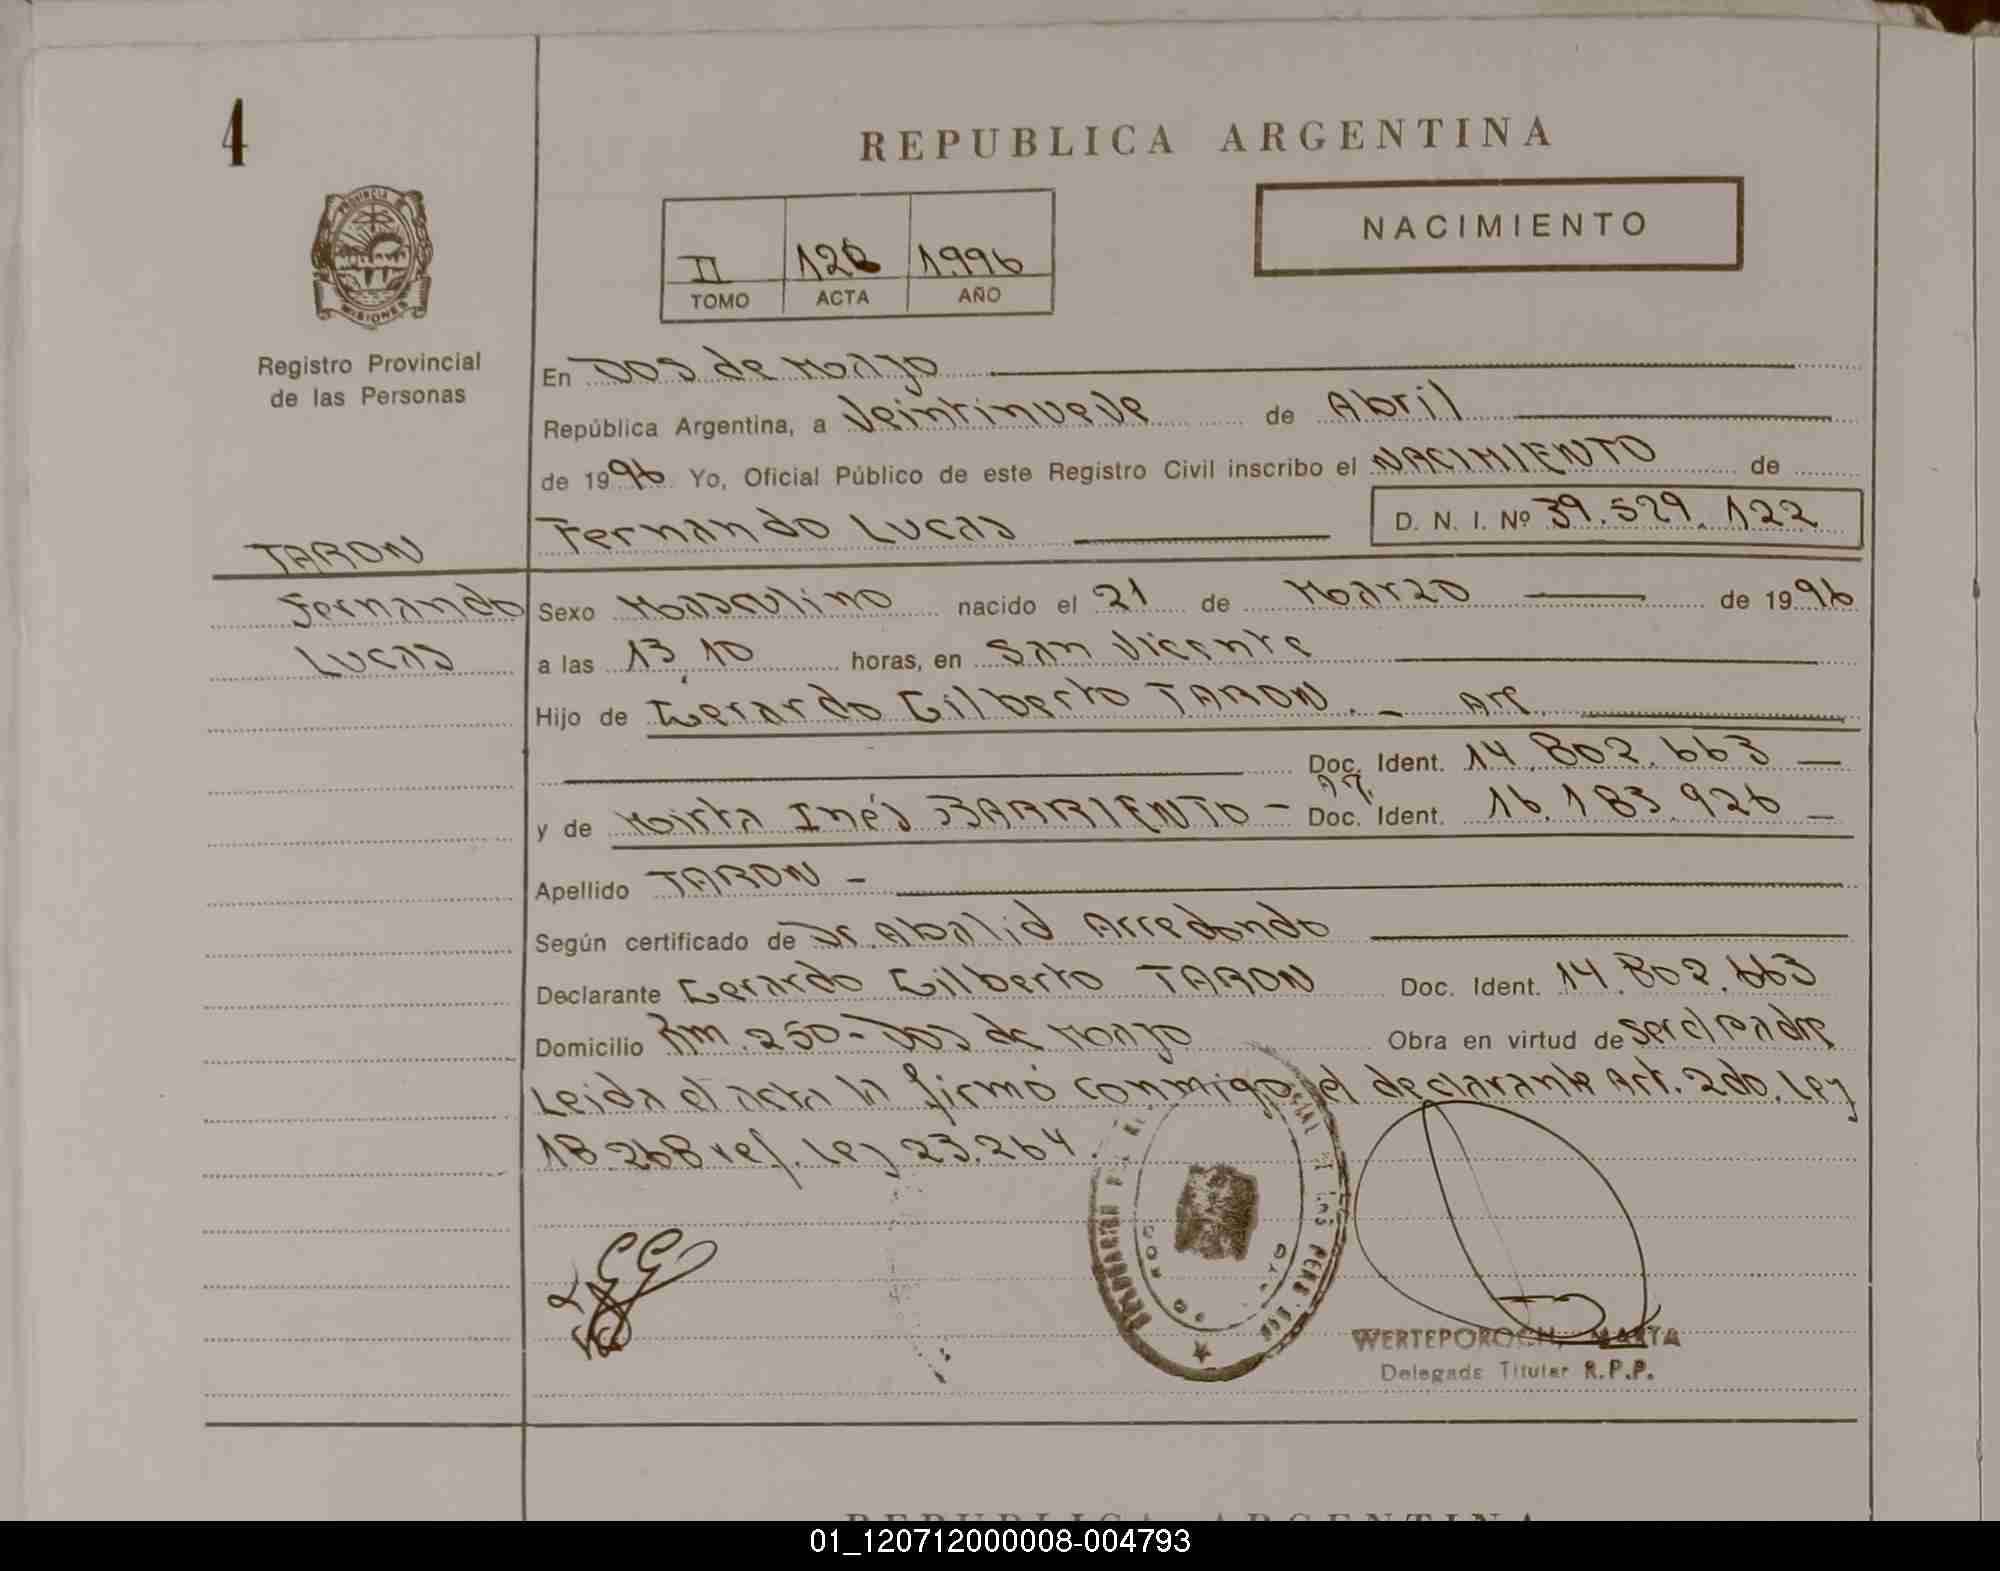 4
REPUBLICA ARGENTINA
NACIMIENTO
II 1996
TOMO ACTA AÑO
PROVINCIA DE
MISIONES
Registro Provincial
de las Personas
En Dos de Mayo
República Argentina, a Veintinueve de Abril
de 1996 Yo, Oficial Público de este Registro Civil inscribo el NACIMIENTO de
TARON
Fernando Lucas D. N. I. Nº 39.529.122
Fernando
Lucas
Sexo Masculino nacido el 21 de Marzo de 1996
a las 13,10 horas, en San Vicente
Hijo de Gerardo Gilberto TARON. - Arg.
Doc. Ident. 14.802.663
y de Mirta Inés BARRIENTO - Doc. Ident. 16.183.926
Apellido TARON -
Según certificado de Dr. Abalid Arredondo
Declarante Gerardo Gilberto TARON Doc. Ident. 14.802.663
Domicilio Km. 250 - Dos de Mayo Obra en virtud de ser el Padre
Leida el acta la firmó conmigo el declarante Art. 2do. Ley
18.268 ref. Ley 23.264.
WERTEPOROCH, MARTA
Delegada Titular R.P.P.
REPUBLICA ARGENTINA
01_120712000008-004793